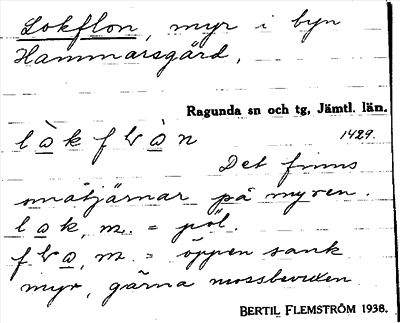 Lokflon, myr i byn
Hammarsgård.
Ragunda sn och tg, Jämtl. län.
lò̲k f ò̲n
1429.
Det finns
småtjärnar på myren.
lo̲k, m. = pöl.
m. = öppen sank
myr, gärna mossbevuxen
BERTIL FLEMSTRÖM 1938.